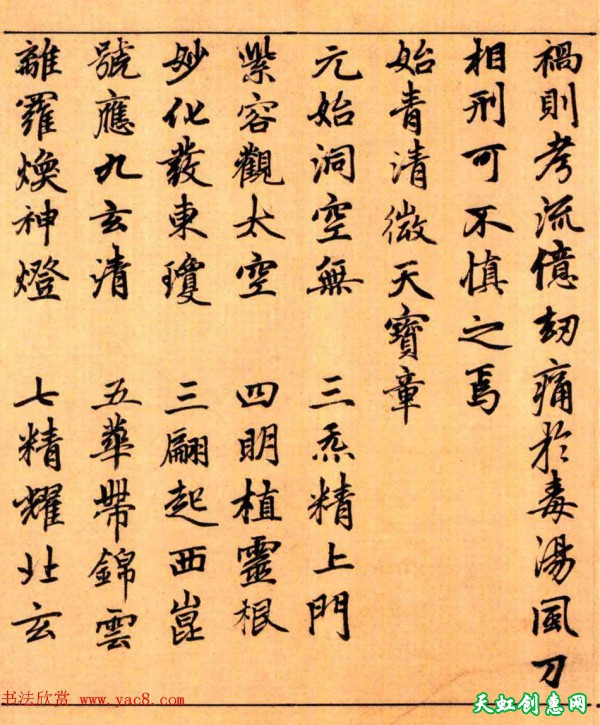 禍則考流億劫痛於毒湯風刀
相刑可不慎之焉
始青清微天寶章
元始洞空無 三炁精上門
紫容觀太空 四明植靈根
妙化發東瓊 三翮起西崑
號應九玄清 五華帶錦雲
離羅煥神燈 七精耀北玄
书法欣赏 www.yac8.com
天虹创惠网